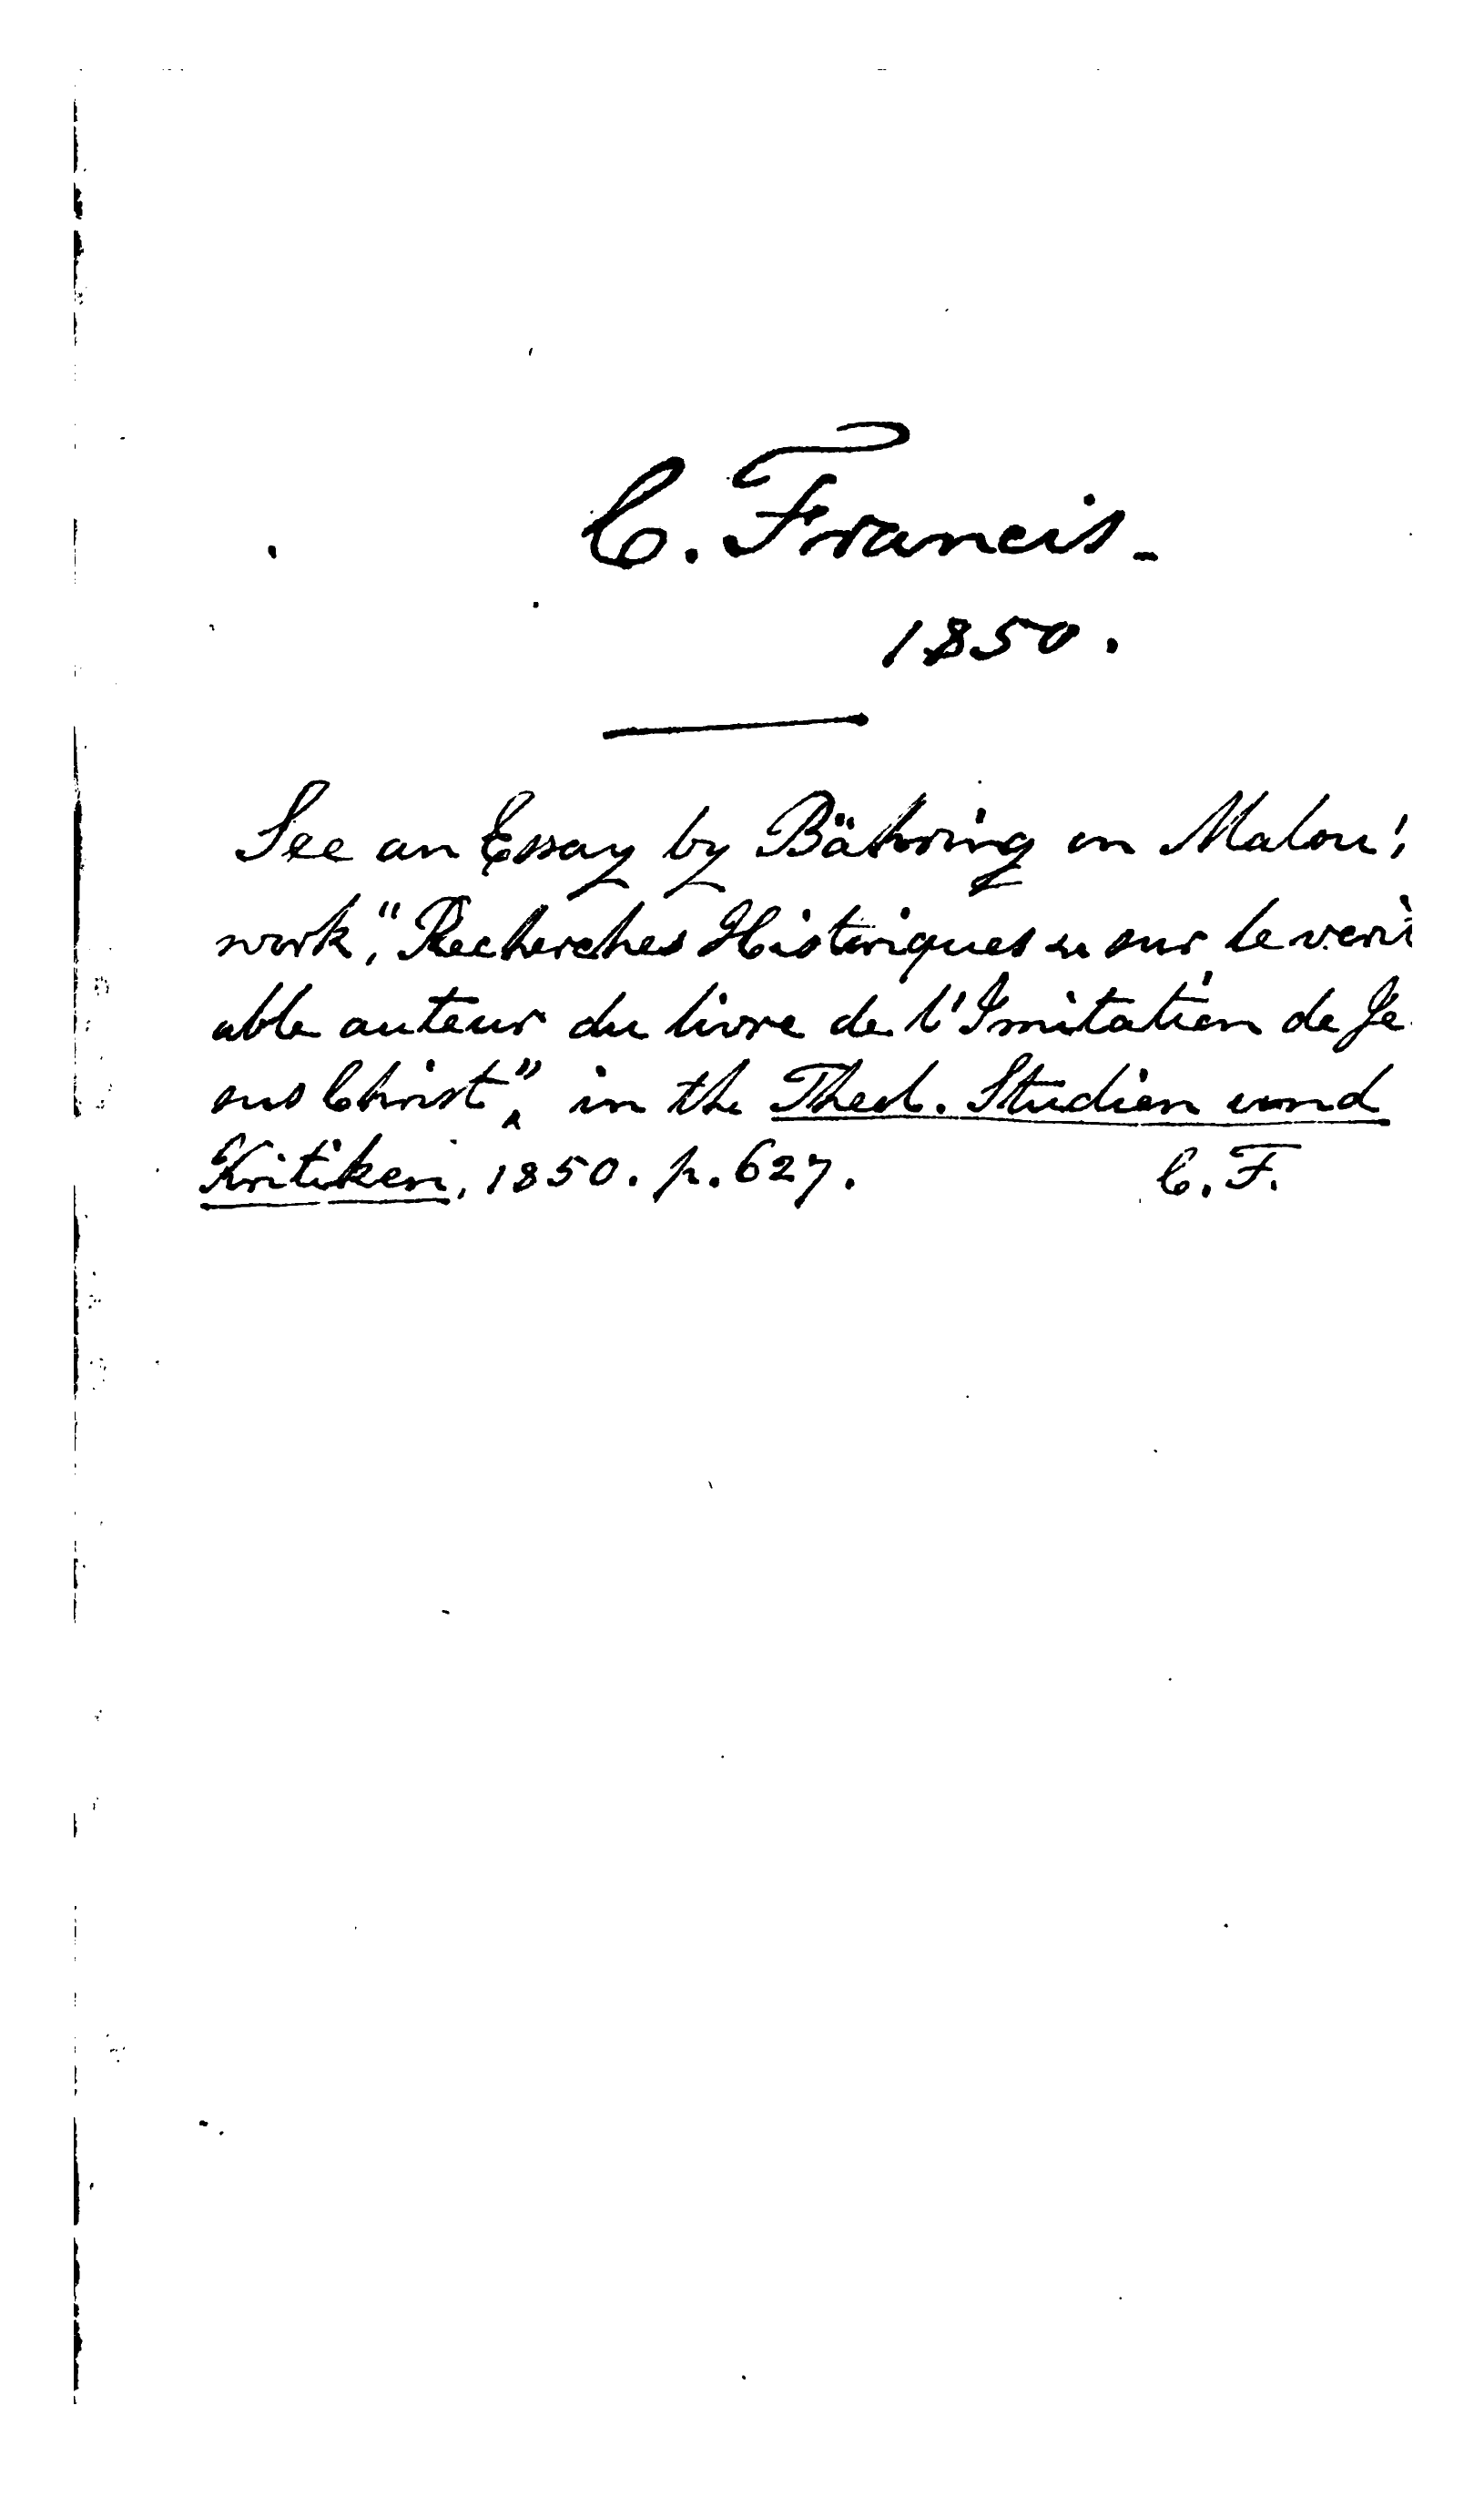 C. Francis.
1850.
See an Essay by Bähring on Malou'
work, "Recherches Historiques &c sur le veri
able auteur du livre de l'Imitation de Je
sus Christ", in the Theol. Studien und
Kritiken, 1850. p. 627. C. F.